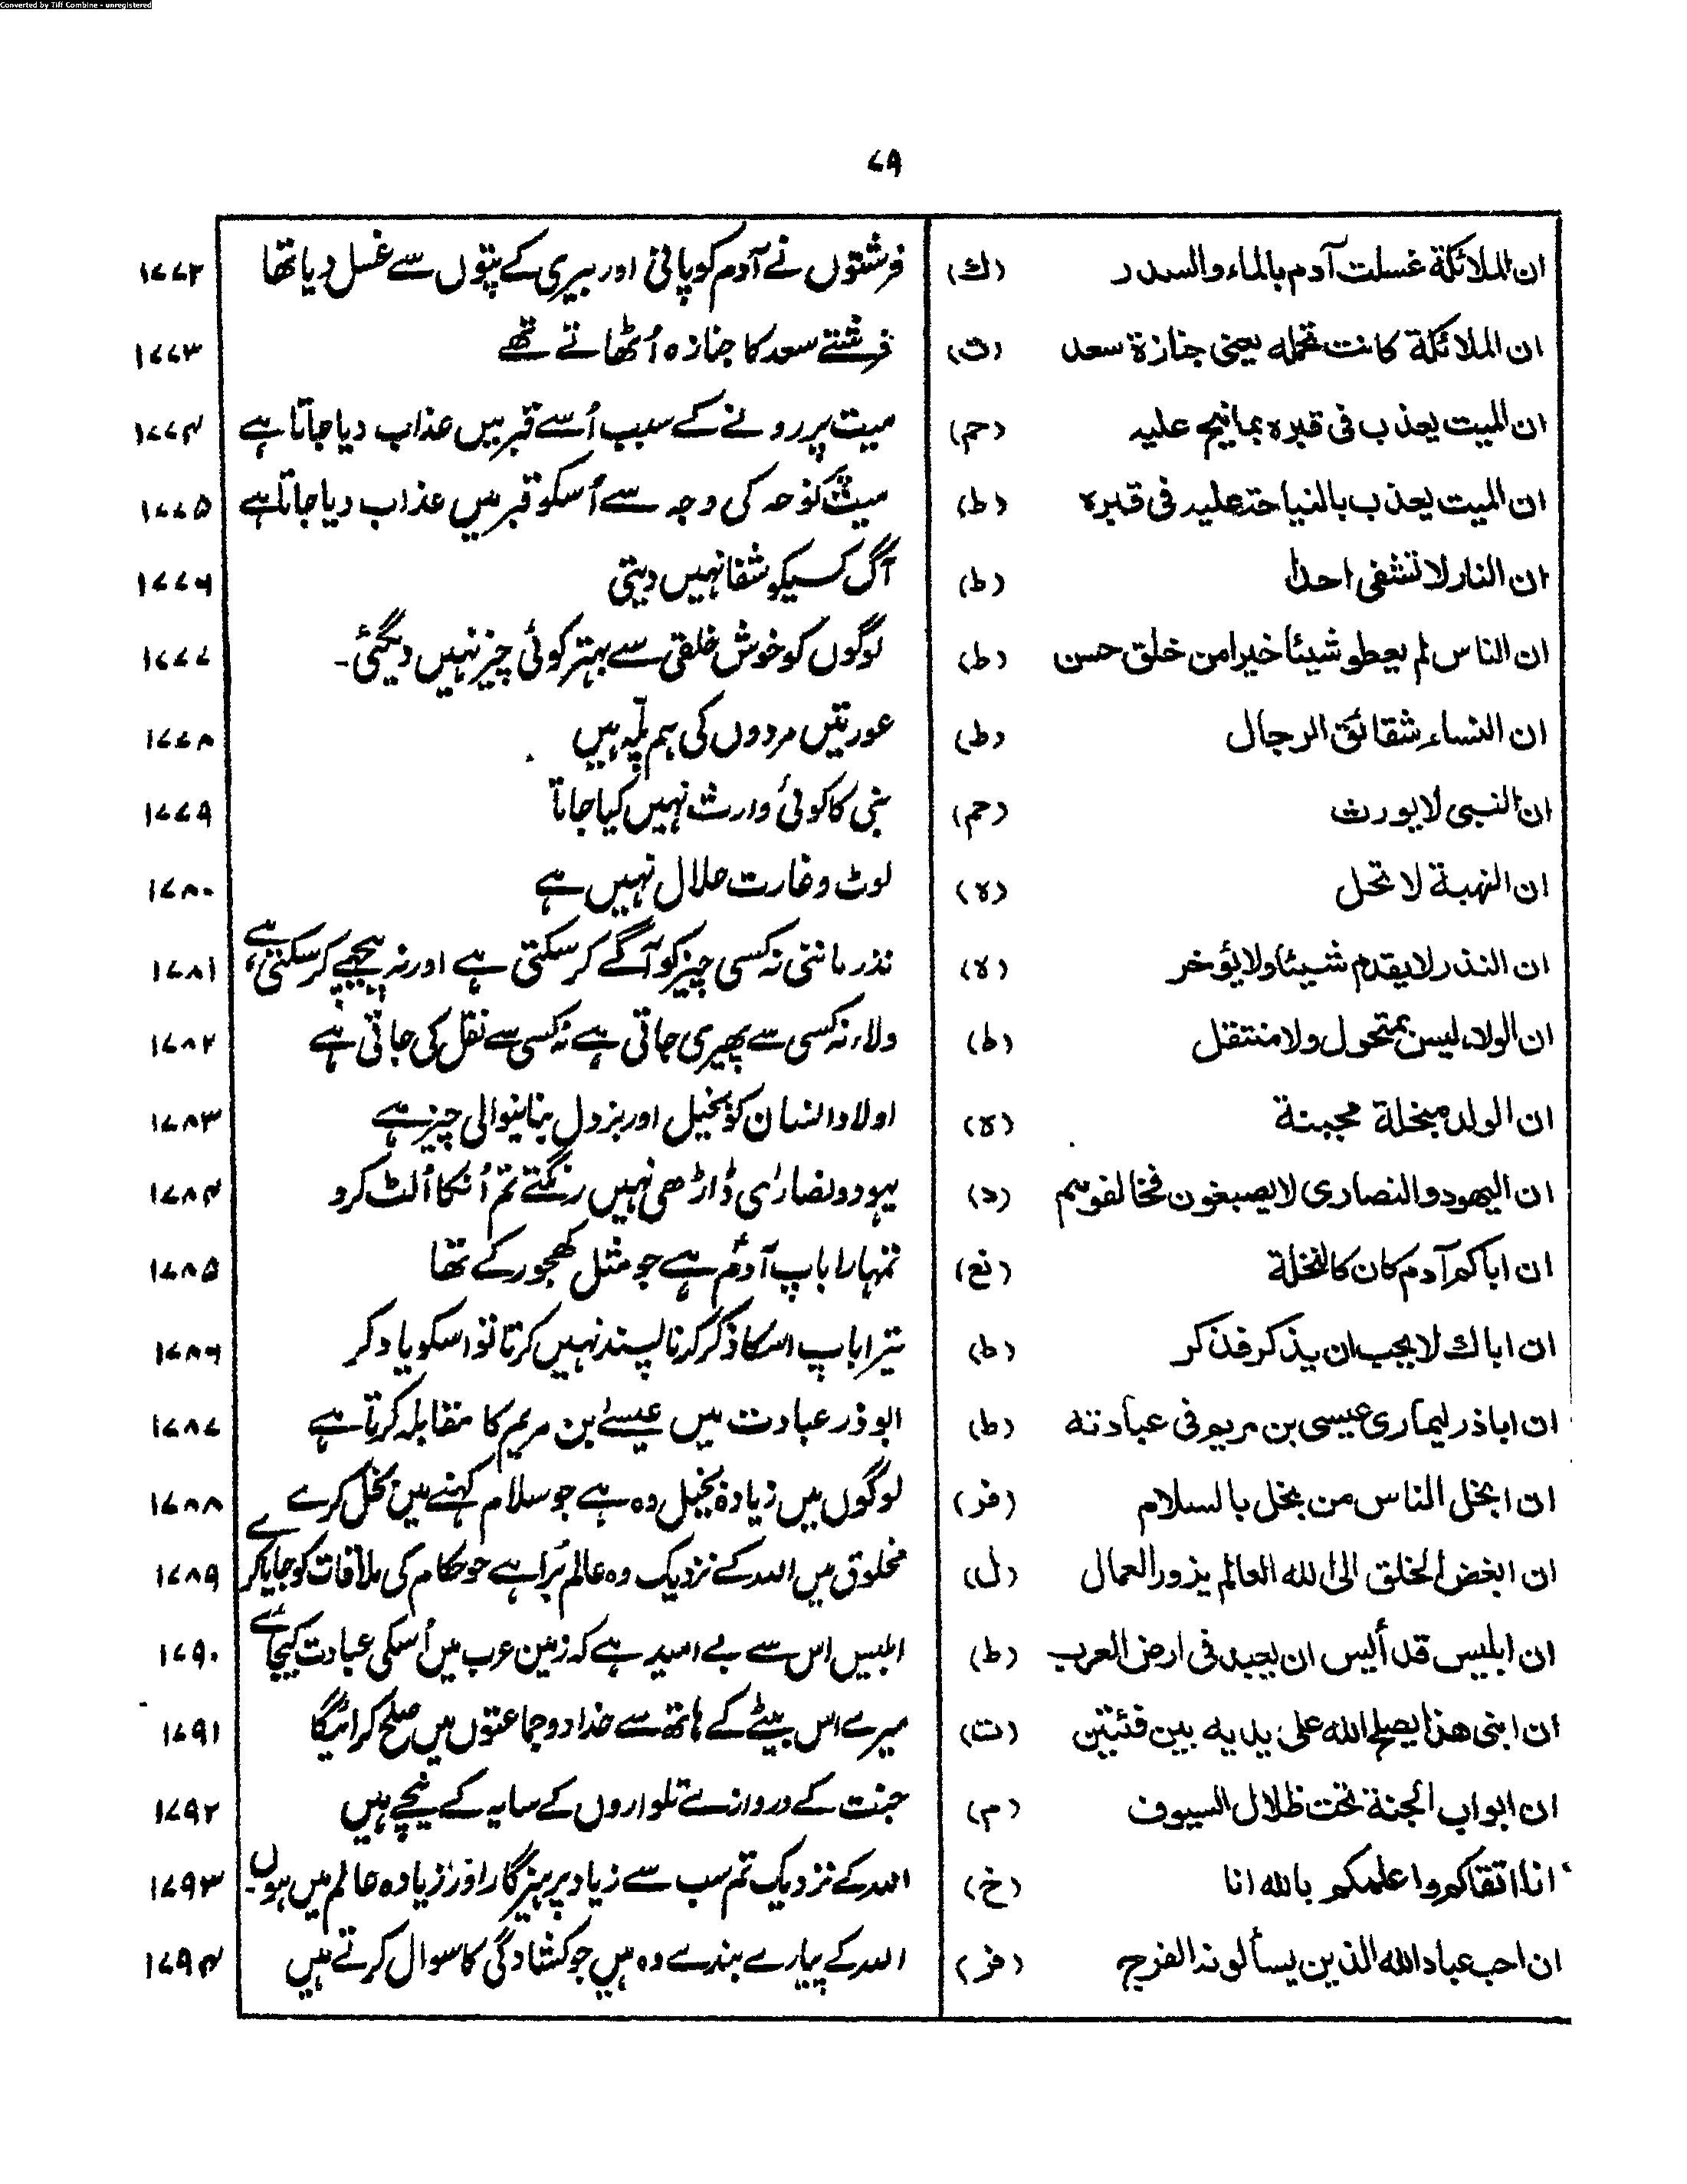 Converted by Tiff Combine - unregistered
۷۹
ان الملائکة غسلت آدم بالماء والسدر (ك) فرشتوں نے آدم کو پانی اور بیری کے پتوں سے غسل دیا تھا ۱۷۷۲
ان الملائکة کانت تحمله یعنی جنازة سعد (ت) فرشتے سعد کا جنازہ اُٹھاتے تھے ۱۷۷۳
ان المیت یعذب فی قبره بما نیح علیه (حم) میت پر رونے کے سبب اُسے قبر میں عذاب دیا جاتا ہے ۱۷۷۴
ان المیت یعذب بالنیاحة علیه فی قبره (ط) میت پر نوحہ کی وجہ سے اُسکو قبر میں عذاب دیا جاتا ہے ۱۷۷۵
ان النار لا تشفی احدا (ط) آگ کسیکو شفا نہیں دیتی ۱۷۷۶
ان الناس لم یعطو شیئا خیرا من خلق حسن (ط) لوگوں کو خوش خلقی سے بہتر کوئی چیز نہیں دیگئی۔ ۱۷۷۷
ان النساء شقائق الرجال (ط) عورتیں مردوں کی ہم پلّہ ہیں ۱۷۷۸
ان النبی لا یورث (حم) نبی کا کوئی وارث نہیں کیا جاتا ۱۷۷۹
ان النهبة لا تحل (ه) لوٹ و غارت حلال نہیں ہے ۱۷۸۰
ان النذر لا یقدم شیئا ولا یؤخر (ه) نذر ماننی نہ کسی چیز کو آگے کر سکتی ہے اور نہ پیچھے کر سکتی ہے ۱۷۸۱
ان الولاء لیس بمتحول ولا منتقل (ط) ولاء نہ کسی سے پھیری جاتی ہے نہ کسی سے نقل کی جاتی ہے ۱۷۸۲
ان الولد مبخلة مجبنة (ه) اولاد انسان کو بخیل اور بزدل بنانیوالی چیز ہے ۱۷۸۳
ان الیهود والنصاری لا یصبغون فخالفوهم (د) یہود و نصاریٰ ڈاڑھی نہیں رنگتے تم اُنکا اُلٹ کرو ۱۷۸۴
ان اباکم آدم کان کالنخلة (نع) تمہارا باپ آدم ہے جو مثل کھجور کے تھا ۱۷۸۵
ان اباك لا یحب ان یذکر فذکر (ط) تیرا باپ اسکا ذکر کرنا پسند نہیں کرتا تو اسکو یاد کر ۱۷۸۶
ان اباذر لیماری عیسی بن مریم فی عبادته (ط) ابوذر عبادت میں عیسےٰ بن مریم کا مقابلہ کرتا ہے ۱۷۸۷
ان ابخل الناس من بخل بالسلام (فر) لوگوں میں زیادہ بخیل وہ ہے جو سلام کہنے میں بخل کرے ۱۷۸۸
ان ابغض الخلق الی الله العالم یزور العمال (ل) مخلوق میں اللہ کے نزدیک وہ عالم بُرا ہے جو حکام کی ملاقات کو جایا کرے ۱۷۸۹
ان ابلیس قد أیس ان یعبد فی ارض العرب (ط) ابلیس اس سے بے امید ہے کہ زمین عرب میں اُسکی عبادت کیجائے ۱۷۹۰
ان ابنی هذا یصلح الله علی یدیه بین فئتین (ت) میرے اس بیٹے کے ہاتھ سے خدا دو جماعتوں میں صلح کرائیگا ۱۷۹۱
ان ابواب الجنة تحت ظلال السیوف (م) جنت کے دروازے تلواروں کے سایہ کے نیچے ہیں ۱۷۹۲
ان اتقاکم واعلمکم بالله انا (خ) اللہ کے نزدیک تم سب سے زیادہ پرہیزگار اور زیادہ عالم میں ہوں۔ ۱۷۹۳
ان احب عباد الله الذین یسألونه الفرج (فر) اللہ کے پیارے بندے وہ ہیں جو کشادگی کا سوال کرتے ہیں ۱۷۹۴